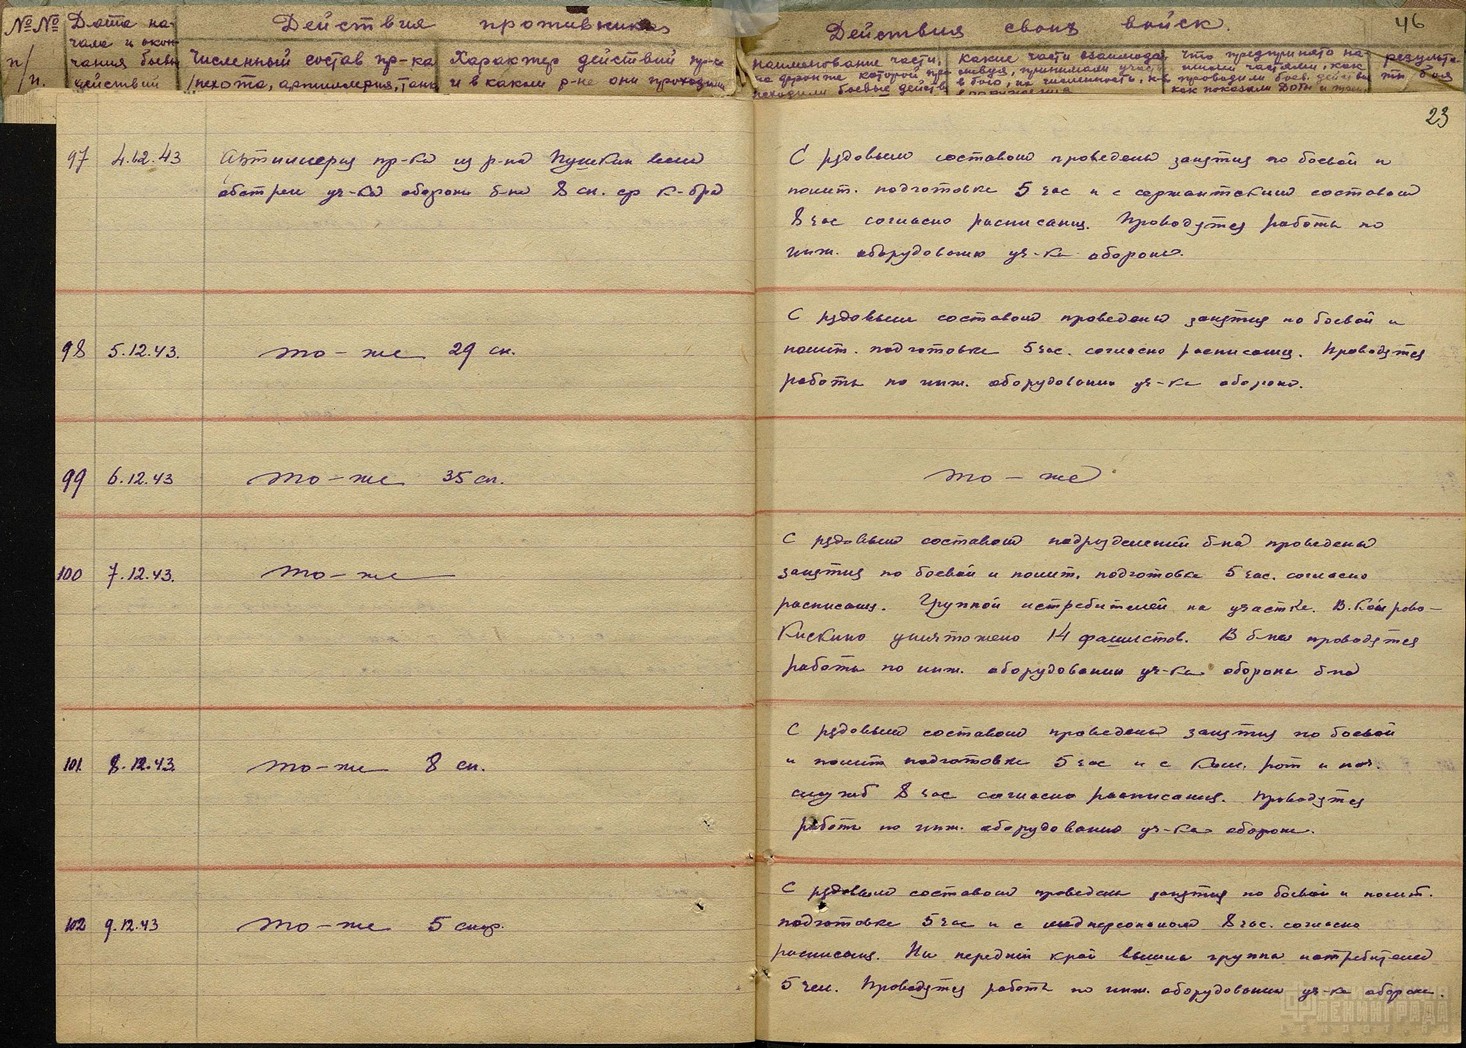 №№ п/п.
Дата начала и окончания боевых действий
Действия противника
Численный состав пр-ка /пехота, артиллерия, танки
Характер действий пр-ка и в каком р-не они проходили
Действия своих войск.
46
наименование части, на фронте которой проходили боевые действ
какие части взаимодействуя, принимали участ в бою, их численность, к-в
Что предпринято нашими частями, как проводили боев. действ как показали ДОТы и
результаты боя
23
97 4.12.43 Артиллерия пр-ка из р-на Пушкин вела
обстрел уч-ка обороны б-на 8 сн. ср к-бра
С рядовым составом проведены занятия по боевой и
полит. подготовке 5 час и с сержантским составом
8 час согласно расписания. Проводятся работы по
инж. оборудованию уч-ка обороны.
98 5.12.43. то-же 29 сн.
С рядовым составом проведены занятия по боевой и
полит. подготовке 5 час. согласно расписания. Проводятся
работы по инж. оборудованию уч-ка обороны.
99 6.12.43 то-же 35 сн.
то-же
100 7.12.43. то-же
С рядовым составом подразделений б-на проведены
занятия по боевой и полит. подготовке 5 час. согласно
расписания. Группой истребителей на участке В.
Кискино уничтожено 14 фашистов. В б-не проводятся
работы по инж. оборудованию уч-ка обороны б-на
101 8.12.43. то-же 8 сн.
С рядовым составом проведены занятия по боевой
и полит. подготовке 5 час и с ком. рот и нач.
служб 8 час согласно расписания. Проводятся
работы по инж. оборудованию уч-ка обороны.
102 9.12.43 то-же 5 снар.
С рядовым составом проведены занятия по боевой и полит.
подготовке 5 час и с медперсоналом 8 час. согласно
расписания. На передний край вышла группа истребителей
5 чел. Проводятся работы по инж. оборудованию уч-ка обороны.